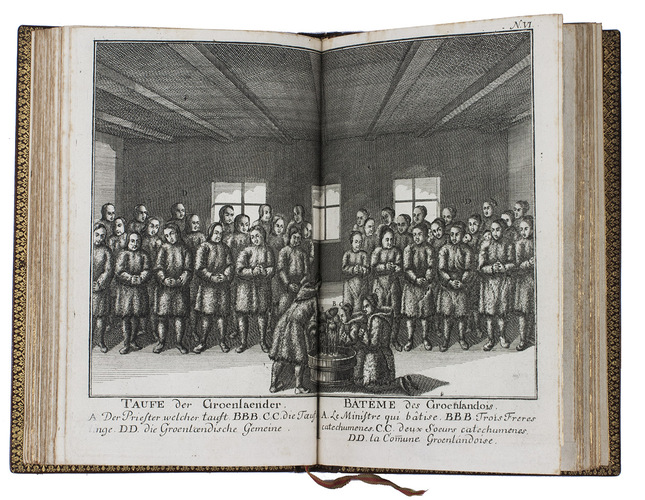 N. VI.
TAUFE der Groenlaender.
A Der Priester welcher tauft. BBB. C C. die Taüf
linge. DD. die Groenlændische Gemeine.
BATÈME des Groenlandois.
A. Le Ministre qui bâtise. BBB. Trois Freres
catechumenes. C C. deux Soeurs catechumenes.
DD. la Comune Groenlandoise.